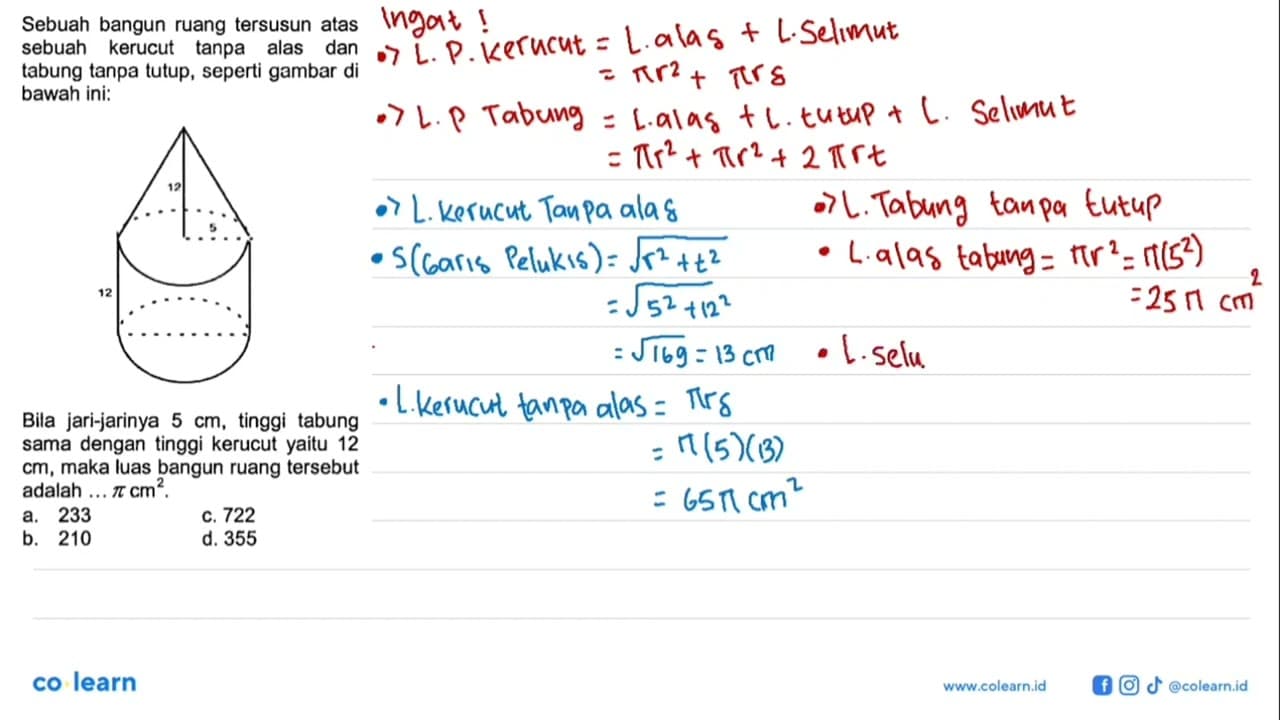 Sebuah bangun ruang tersusun atas
sebuah kerucut tanpa alas dan
tabung tanpa tutup, seperti gambar di
bawah ini:
12
5
12
Bila jari-jarinya 5 cm, tinggi tabung
sama dengan tinggi kerucut yaitu 12
cm, maka luas bangun ruang tersebut
adalah ... π cm².
a. 233 c. 722
b. 210 d. 355
Ingat !
•> L. P. kerucut = L.alas + L.Selimut
= πr² + πrs
•> L. P Tabung = L.alas + L. tutup + L. Selimut
= πr² + πr² + 2πrt
•> L. kerucut Tanpa alas
• S(Garis Pelukis) = √r² + t²
= √5² + 12²
= √169 = 13 cm
• L.kerucut tanpa alas = πrs
= π(5)(13)
= 65π cm²
•> L. Tabung tanpa tutup
• L.alas tabung = πr² = π(5²)
= 25π cm²
• L. selu
co learn
www.colearn.id
@colearn.id